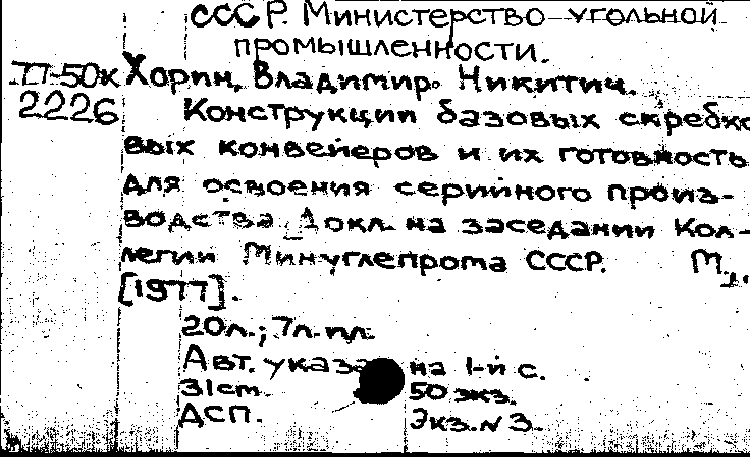 СССР. Министерство угольной
промышленности.
П-50к Хорин, Владимир Никитич.
2226 Конструкции базовых скребко
вых конвейеров и их готовность
для освоения серийного произ-
водства. Докл. на заседании Кол-
легии Минуглепрома СССР. М.,
[1977].
20л.; 7л. пл.
Авт. указа на 1-й с.
31см. 50 экз.
ДСП. Экз. N 3.